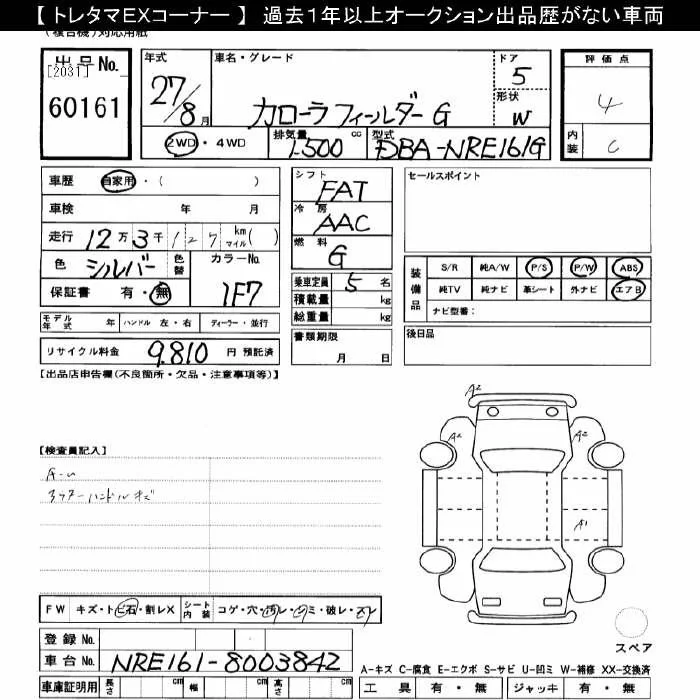 【 トレタマEXコーナー 】 過去1年以上オークション出品歴がない車両
(複合機)対応用紙
出品No.
[2031]
60161
年式
27/8月
車名・グレード
カローラフィールダーG
ドア
5
形状
W
評価点
4
内装
C
2WD・4WD
排気量
1500cc
型式
DBA-NRE161G
車歴 自家用・( )
車検 年 月
走行 12万3千127 km マイル( )
色 シルバー
色替
カラーNo.
1F7
保証書 有・無
モデル年式 年 ハンドル 左・右 ディーラー・並行
リサイクル料金 9,810 円 預託済
シフト
FAT
冷房
AAC
燃料
G
乗車定員 5 名
積載量 kg
総重量 kg
書類期限
月 日
セールスポイント
装備品
S/R 純A/W P/S P/W ABS
純TV 純ナビ 革シート 外ナビ エアB
ナビ型番:
後日品
【出品店申告欄(不良箇所・欠品・注意事項等)】
【検査員記入】
A-U
A2
A2
A2
A1
FW キズ・ト ビ石・割レX
シート内装 コゲ・穴・汚レ・シミ・破レ・スレ
登録No.
車台No. NRE161-8003842
車庫証明用 長さ cm 幅 cm 高さ cm
スペア
A-キズ C-腐食 E-エクボ S-サビ U-凹ミ W-補修 XX-交換済
工具 有・無 ジャッキ 有・無